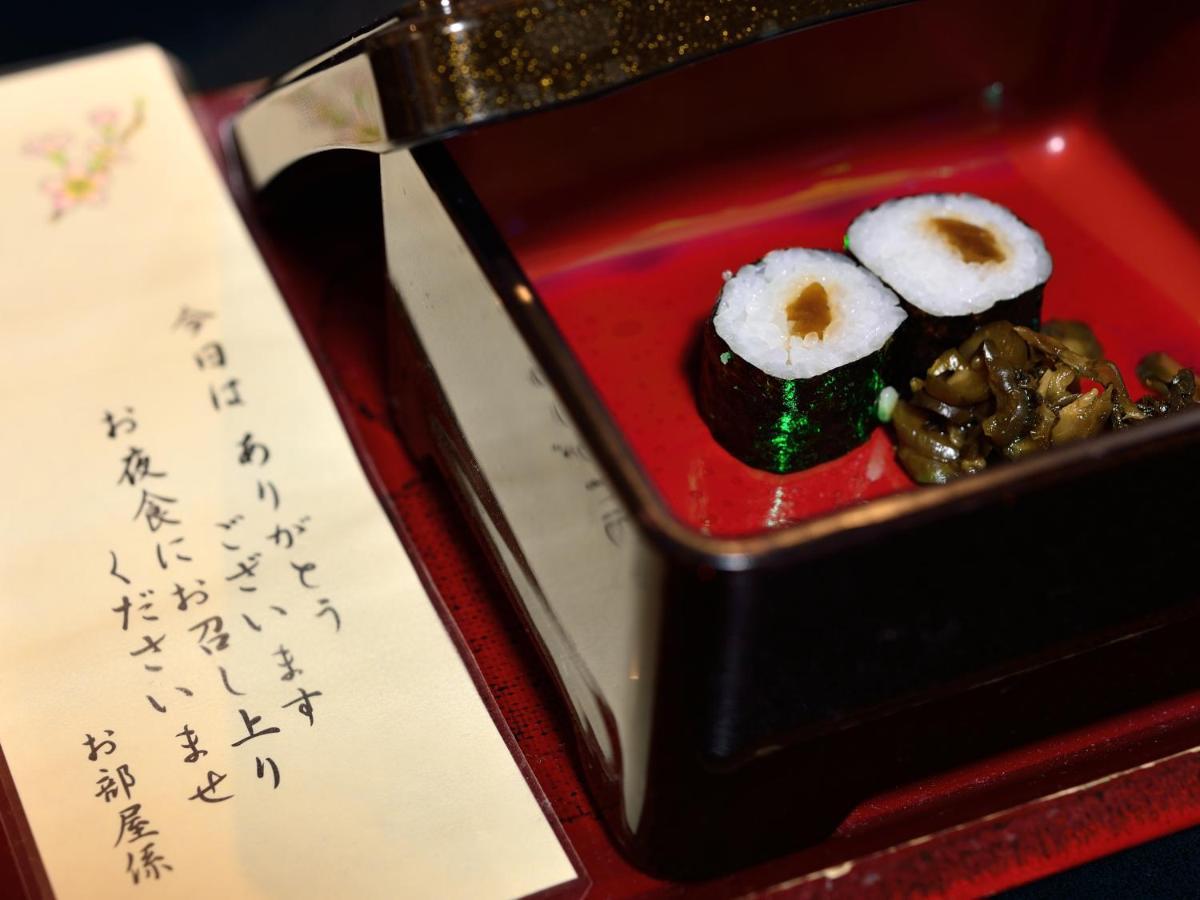 今日は ありがとう
ございます
お夜食にお召し上り
くださいませ
お部屋係